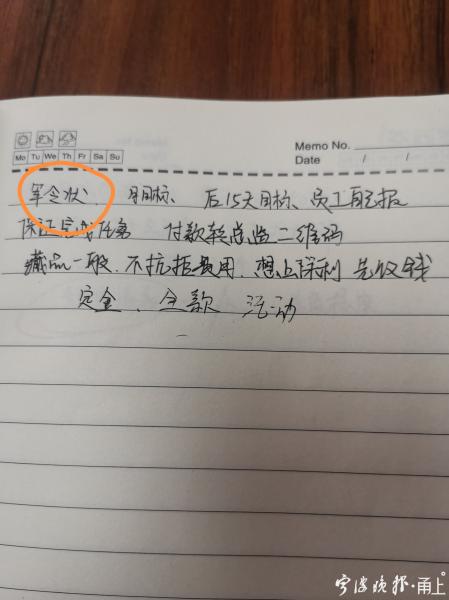 Memo No.
Mo Tu We Th Fr Sa Su
Date / /
军令状、月目标、后15天目标、员工自己报
保证完成任务 付款转总监二维码
藏品一般、不抗拒费用、想上保利 先收钱
定金、全款 活动
宁波晚报·甬上